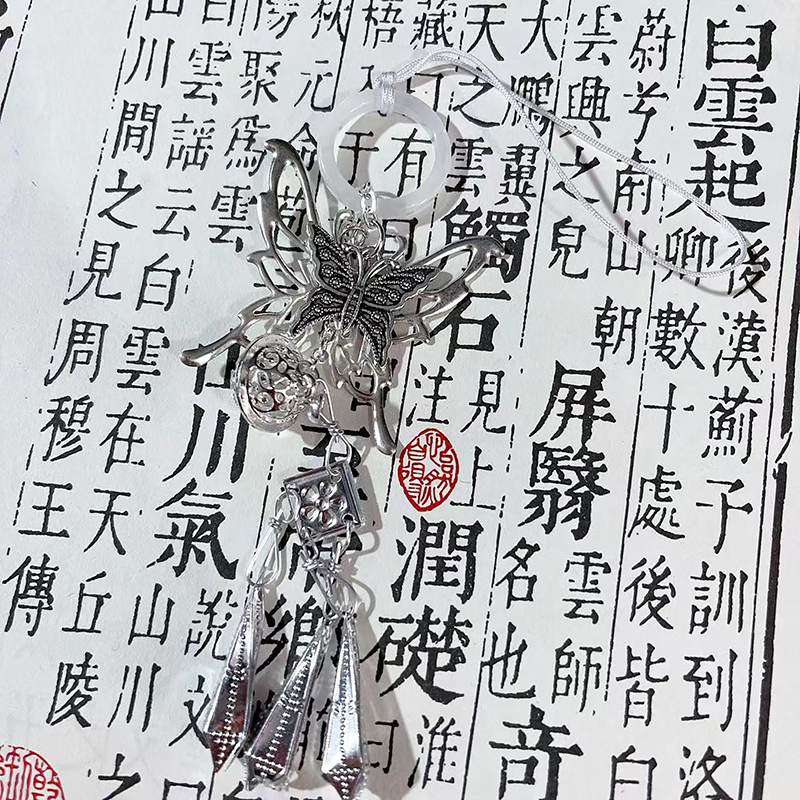 白雲起
後漢薊子訓到洛
卿數十處後皆白
蔚兮南山朝
雲興之皃
屏翳
雲師
名也
奇
大鵬翼
天之雲
觸石
見上
注
潤礎
淮
曰
藏
有
梧
于
鄉
秋元命苞
陽聚爲雲
在川氣
說文
山川之
白雲謠云白雲在天丘陵
山川間之見周穆王傳